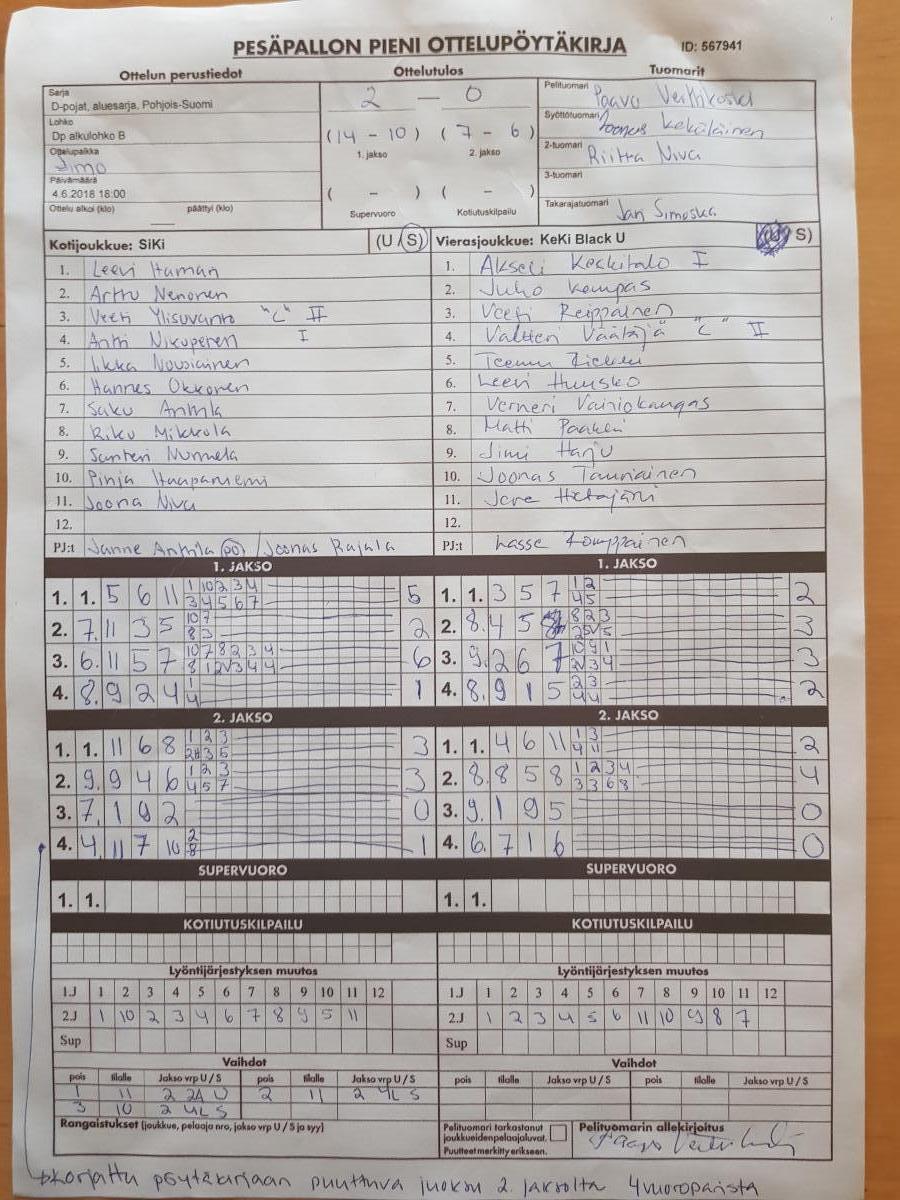 PESÄPALLON PIENI OTTELUPÖYTÄKIRJA ID: 567941
Ottelun perustiedot Ottelutulos Tuomarit
Sarja
D-pojat, aluesarja, Pohjois-Suomi
Lohko
Dp alkulohko B
Ottelupaikka
Simo
Päivämäärä
4.6.2018 18:00
Ottelu alkoi (klo) päättyi (klo)
2 — 0
(14 - 10) (7 - 6)
1. jakso 2. jakso
( - ) ( - )
Supervuoro Kotiutuskilpailu
Pelituomari Paavo
Syöttötuomari Joonas Kekäläinen
2-tuomari Riitta Niva
3-tuomari
Takarajatuomari Jan Simoska
Kotijoukkue: SiKi (U / S)
1. Leevi Haman
2. Arttu Nenonen
3. Veeti Ylisuvanto "C" II
4. Antti Nikuperen I
5. Iikka Nousiainen
6. Hannes Okkonen
7. Saku Anttila
8. Riku Mikkola
9. Santeri Nurmela
10. Pinja Haapaniemi
11. Joona Niva
12.
PJ:t Janne Anttila (PO) / Joonas Rajala
Vierasjoukkue: KeKi Black U (U S)
1. Akseli Keskitalo I
2. Juho Kempas
3. Veeti Reippainen
4. Valtteri Väätäjä "C" II
5. Teemu
6. Leevi Huusko
7. Verneri Vainiokangas
8. Matti
9. Jimi Harju
10. Joonas Tauriainen
11. Jere Hietajärvi
12.
PJ:t Lasse Komppainen
1. JAKSO
1. 1. 5 6 11 1 10 2 3 4 5
3 4 5 6 7
2. 7. 11 3 5 10 7 2
8 3
3. 6. 11 5 7 10 7 8 2 3 4 6
8 1 2V 3 4 4
4. 8. 9 2 4 1 1
4
1. JAKSO
1. 1. 3 5 7 1 2 2
4 5
2. 8. 4 5 8 2 3 3
3. 9. 2 6 7 10 9 1 3
2V 3 4
4. 8. 9 1 5 2 3 2
4 4
2. JAKSO
1. 1. 11 6 8 1 2 3 3
3 5
2. 9. 9 4 6 1 2 3 3
4 5 7
3. 7. 1 9 2 0
4. 4. 11 7 10 2 1
8
2. JAKSO
1. 1. 4 6 11 1 3 2
4 11
2. 8. 8 5 8 1 2 3 4 4
3 3 6 8
3. 9. 1 9 5 0
4. 6. 7 1 6 0
SUPERVUORO SUPERVUORO
1. 1. 1. 1.
KOTIUTUSKILPAILU KOTIUTUSKILPAILU
Lyöntijärjestyksen muutos
1.J 1 2 3 4 5 6 7 8 9 10 11 12
2.J 1 10 2 3 4 6 7 8 9 5 11
Sup
Lyöntijärjestyksen muutos
1.J 1 2 3 4 5 6 7 8 9 10 11 12
2.J 1 2 3 4 5 6 11 10 9 8 7
Sup
Vaihdot
pois tilalle Jakso vrp U / S pois tilalle Jakso vrp U / S
1 11 2 2A U 2 11 2 4L S
3 10 2 4L S
Vaihdot
pois tilalle Jakso vrp U / S pois tilalle Jakso vrp U / S
Rangaistukset (joukkue, pelaaja nro, jakso vrp U / S ja syy)
Pelituomari tarkastanut
joukkueidenpelaajaluvat.
Puutteet merkitty erikseen.
Pelituomarin allekirjoitus
korjattu pöytäkirjaan puuttuva juoksu 2. jaksolta 4 vuoroparista